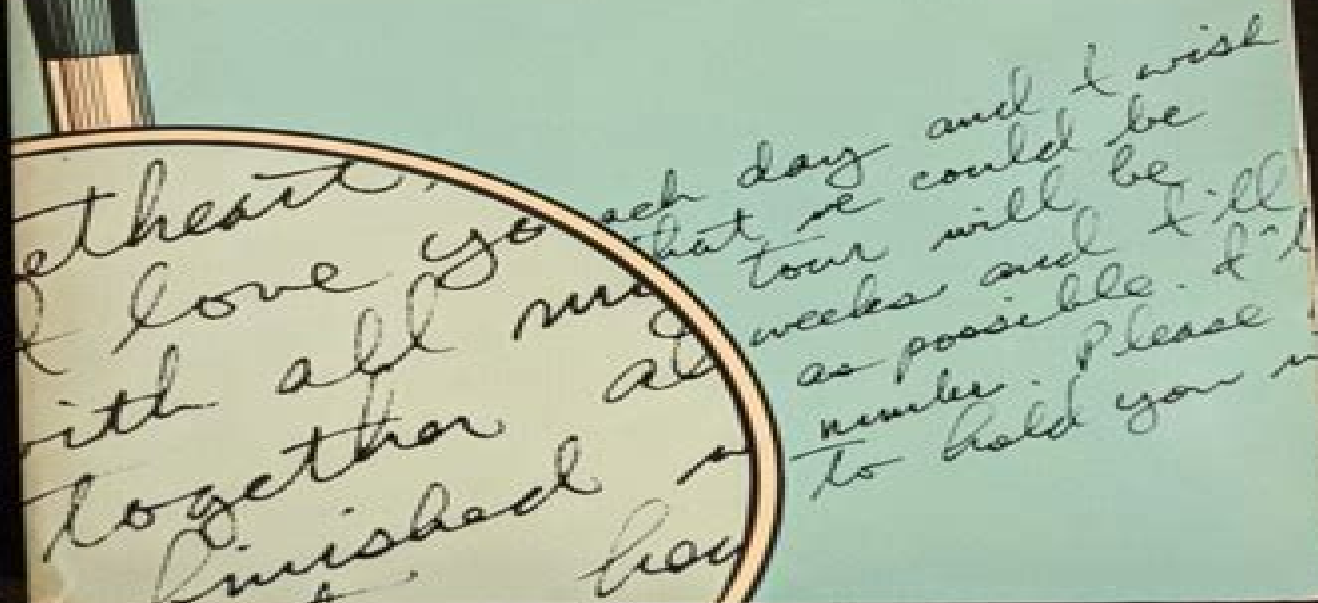 etheart,
I love yo
with all my
together al
finished
hey
ach day and I wish
that we could be
tour will be
weeks and I'll
as possible. I'l
number. Please
to hold you